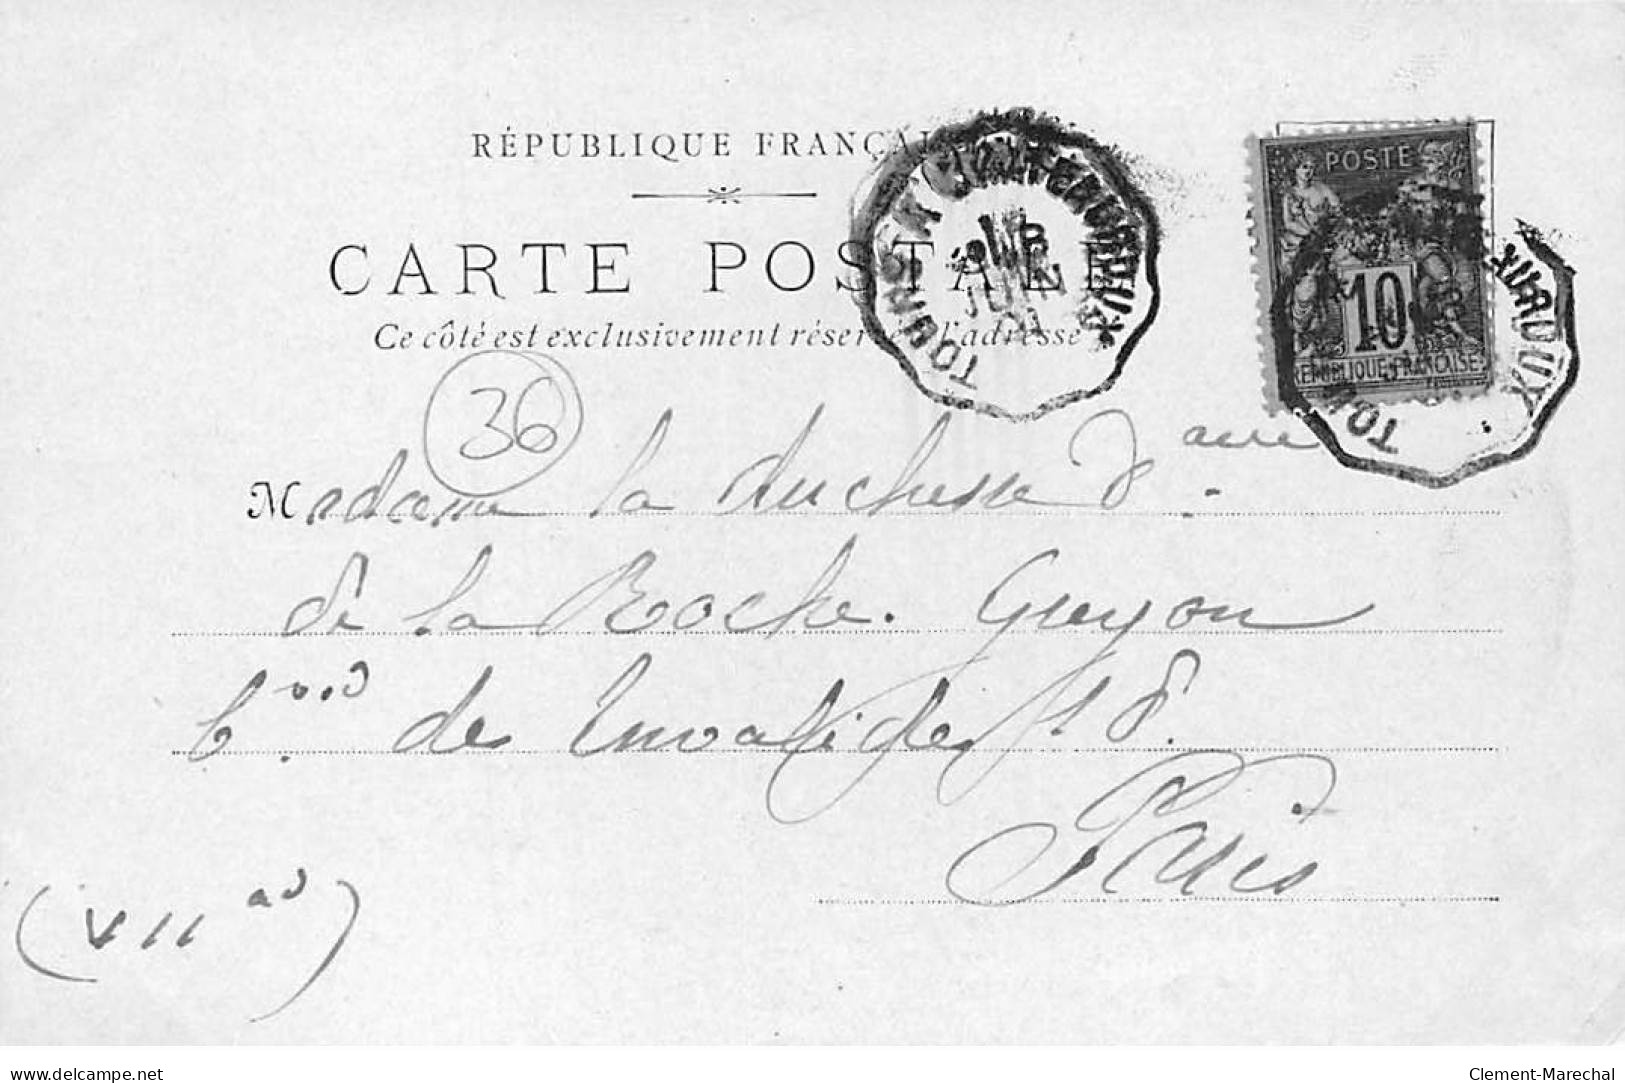 RÉPUBLIQUE FRANÇAI
CARTE POSTALE
Ce côté est exclusivement réser l'adresse
POSTE
10
RÉPUBLIQUE FRANÇAISE
JUIN
TOURS A CHATEAUROUX
36
Madame la duchesse d.
de la Roche. Guyon
bard des Invalides
Paris
(VII ad)
www.delcampe.net
Clement-Marechal